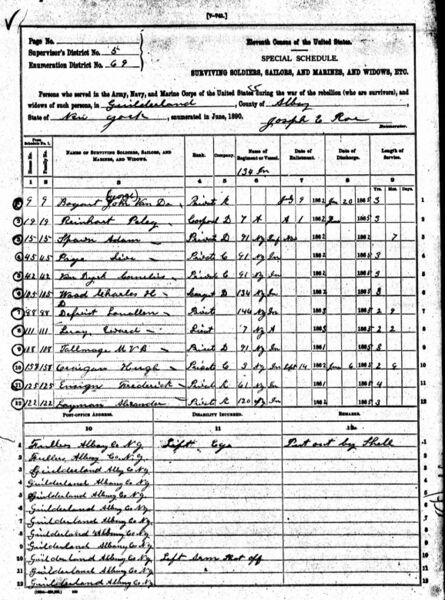 [7-762.]
Page No.
Supervisor's District No. 5
Enumeration District No. 69
Eleventh Census of the United States.
SPECIAL SCHEDULE.
SURVIVING SOLDIERS, SAILORS, AND MARINES, AND WIDOWS, ETC.
Persons who served in the Army, Navy, and Marine Corps of the United States during the war of the rebellion (who are survivors), and
widows of such persons, in Guilderland, County of Albany,
State of New York, enumerated in June, 1890. Joseph E Roe
Enumerator.
From Schedule No. 1.
House No. Family No. NAMES OF SURVIVING SOLDIERS, SAILORS, AND MARINES, AND WIDOWS. Rank. Company. Name of Regiment or Vessel. Date of Enlistment. Date of Discharge. Length of Service.
134 In
Yrs. Mos. Days.
1 2 3 4 5 6 7 8 9
George
1 9 9 Bogart John Van De Privat K 9 1862 Jun 20 1865 3
2 19 19 Reinhart Peley Corporal D 7 A A 1 1862 1865 3
3 15 15 Spawn Adam Privat D 91 Ny Inf Nov 7
4 45 45 Page Privat C 91 Ny In 1862 1865 3
5 42 42 Van Buyck Cornelius Privat C 91 Ny In 1862 1865 3
6 105 105 Wood Charles H Seargt D 134 Ny In 1862 1865 3
D
7 88 88 Lonallen Privat 144 Ny In 1863 2 9
8 111 111 Leroy Edward Privt 7 Ny A 1863 2 2
9 118 118 Tallmage M V B Privat D 91 Ny In 1861 1865 3
10 158 158 Hugh Private C 3 Ny In Sept 14 1862 Jun 6 1865 2 9
11 125 125 Ensign Frederick Privat K 61 Ny In 1861 1865 4
12 122 122 Layman Alexander Privat K 120 Ny In 1862 1865 3
POST-OFFICE ADDRESS. DISABILITY INCURRED. REMARKS.
10 11 12
1 Fullers Albany Co N.Y. Left Eye Put out by Shell
2 Fullers Albany Co. N.Y. 2
3 Guilderland Alby Co N.Y. 3
4 Guilderland Albany Co Ny 4
5 Guilderland Albany Co Ny 5
6 Guilderland Albany Co Ny 6
7 Guilderland Albany Co Ny 7
8 Guilderland Albany Co Ny 8
9 Guilderland Albany Co Ny 9
10 Guilderland Albany Co Ny Left Arm Shot off 10
11 Guilderland Albany Co Ny 11
12 Guilderland Albany Co Ny 12